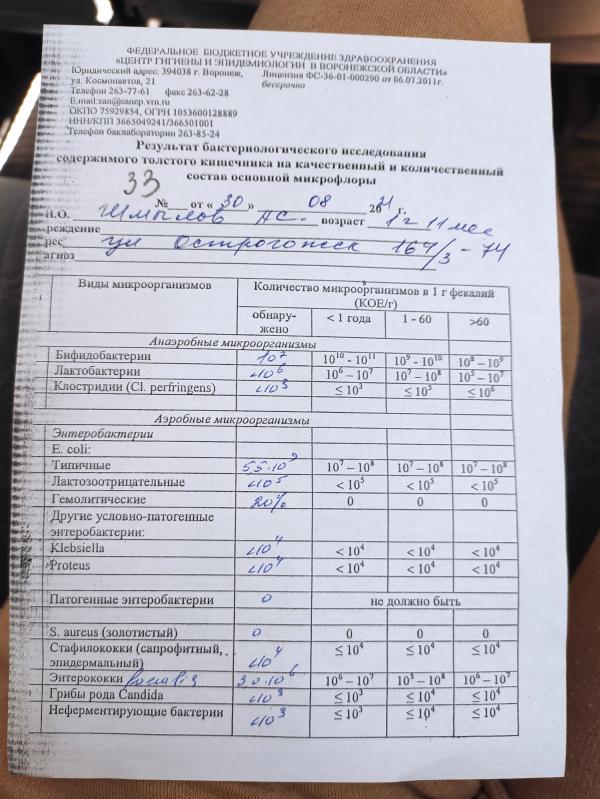 ФЕДЕРАЛЬНОЕ БЮДЖЕТНОЕ УЧРЕЖДЕНИЕ ЗДРАВООХРАНЕНИЯ
«ЦЕНТР ГИГИЕНЫ И ЭПИДЕМИОЛОГИИ В ВОРОНЕЖСКОЙ ОБЛАСТИ»
Юридический адрес: 394038 г. Воронеж, Лицензия ФС-36-01-000290 от 06.07.2011г.
ул. Космонавтов, 21 бессрочно
Телефон 263-77-61 факс 263-62-28
E.mail:san@sanep.vrn.ru
ОКПО 75929854, ОГРН 1053600128889
ИНН/КПП 3665049241/366501001
Телефон баклаборатории 263-85-24
Результат бактериологического исследования
содержимого толстого кишечника на качественный и количественный
состав основной микрофлоры
33 № от « 30 » 08 2021 г.
И.О. Шмылов возраст 1 г 11 мес
реждение
рес ул Острогожск 167/3 - 74
агноз
Виды микроорганизмов Количество микроорганизмов в 1 г фекалий
(КОЕ/г)
обнару-
жено < 1 года 1 - 60 >60
Анаэробные микроорганизмы
Бифидобактерии 10⁷ 10¹⁰ - 10¹¹ 10⁹ - 10¹⁰ 10⁸ – 10⁹
Лактобактерии <10⁶ 10⁶ – 10⁷ 10⁷ – 10⁸ 10⁵ – 10⁷
Клостридии (Cl. perfringens) <10³ ≤ 10³ ≤ 10⁵ ≤ 10⁶
Аэробные микроорганизмы
Энтеробактерии
E. coli:
Типичные 5,5·10⁹ 10⁷ – 10⁸ 10⁷ – 10⁸ 10⁷ – 10⁸
Лактозоотрицательные <10⁵ < 10⁵ < 10⁵ < 10⁵
Гемолитические 20% 0 0 0
Другие условно-патогенные
энтеробактерии:
Klebsiella <10⁴ < 10⁴ < 10⁴ < 10⁴
Proteus <10⁴ < 10⁴ < 10⁴ < 10⁴
Патогенные энтеробактерии 0 не должно быть
S. aureus (золотистый) 0 0 0 0
Стафилококки (сапрофитный,
эпидермальный) <10⁴ ≤ 10⁴ ≤ 10⁴ ≤ 10⁴
Энтерококки 3,0·10⁶ 10⁶ – 10⁷ 10⁵ – 10⁸ 10⁶ – 10⁷
Грибы рода Candida <10³ ≤ 10³ ≤ 10⁴ ≤ 10⁴
Неферментирующие бактерии <10³ ≤ 10³ ≤ 10⁴ ≤ 10⁴